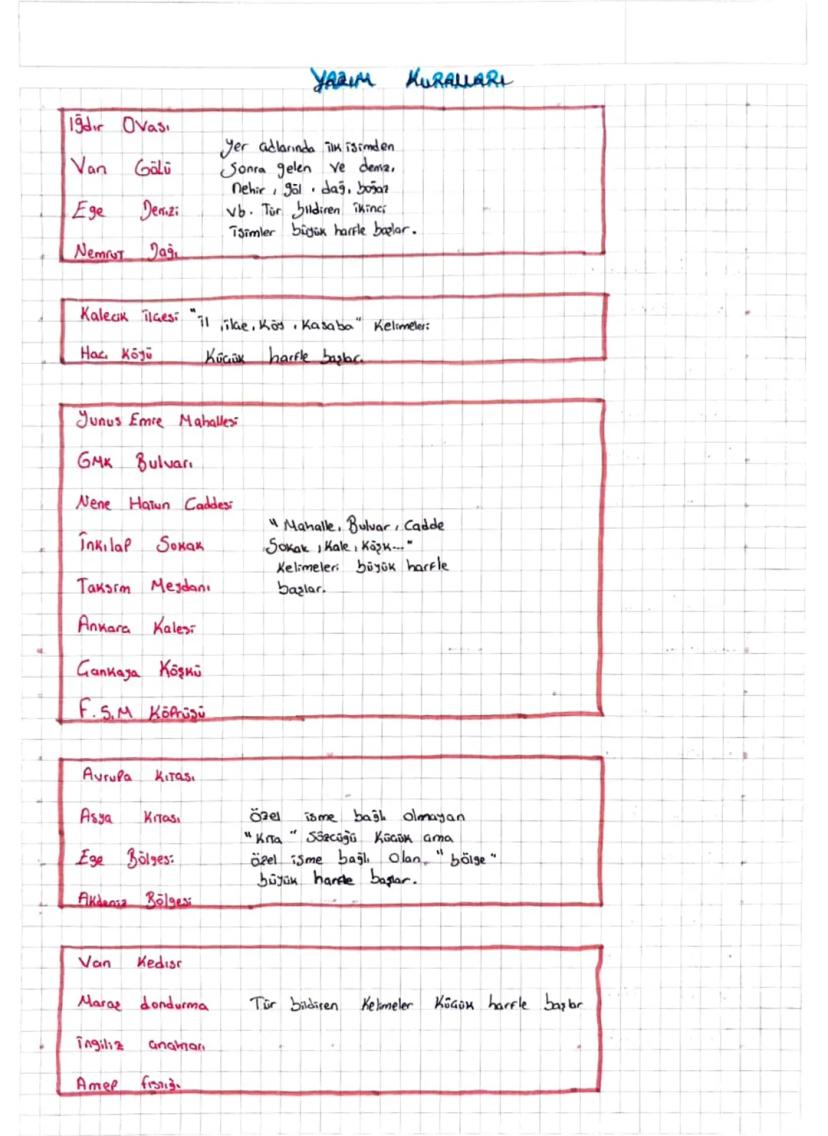 YAZIM KURALLARI
Iğdır Ovası
Yer adlarında ilk isimden
Van Gölü sonra gelen ve deniz,
nehir, göl, dağ, boğaz
Ege Denizi vb. Tür bildiren ikinci
isimler büyük harfle başlar.
Nemrut Dağı
Kalecik ilçesi "il, ilçe, köy, kasaba" kelimeleri
Hacı köyü küçük harfle başlar.
Yunus Emre Mahallesi
GMK Bulvarı
Nene Hatun Caddesi
"Mahalle, Bulvar, Cadde
İnkılap Sokak Sokak, Kale, Köşk..."
kelimeleri büyük harfle
Taksim Meydanı başlar.
Ankara Kalesi
Çankaya Köşkü
F.S.M Köprüsü
Avrupa kıtası
Asya kıtası özel isme bağlı olmayan
"kıta" sözcüğü küçük ama
Ege Bölgesi özel isme bağlı olan "bölge"
büyük harfle başlar.
Akdeniz Bölgesi
Van kedisi
Maraş dondurma Tür bildiren kelimeler küçük harfle başlar
İngiliz anahtarı
Antep fıstığı